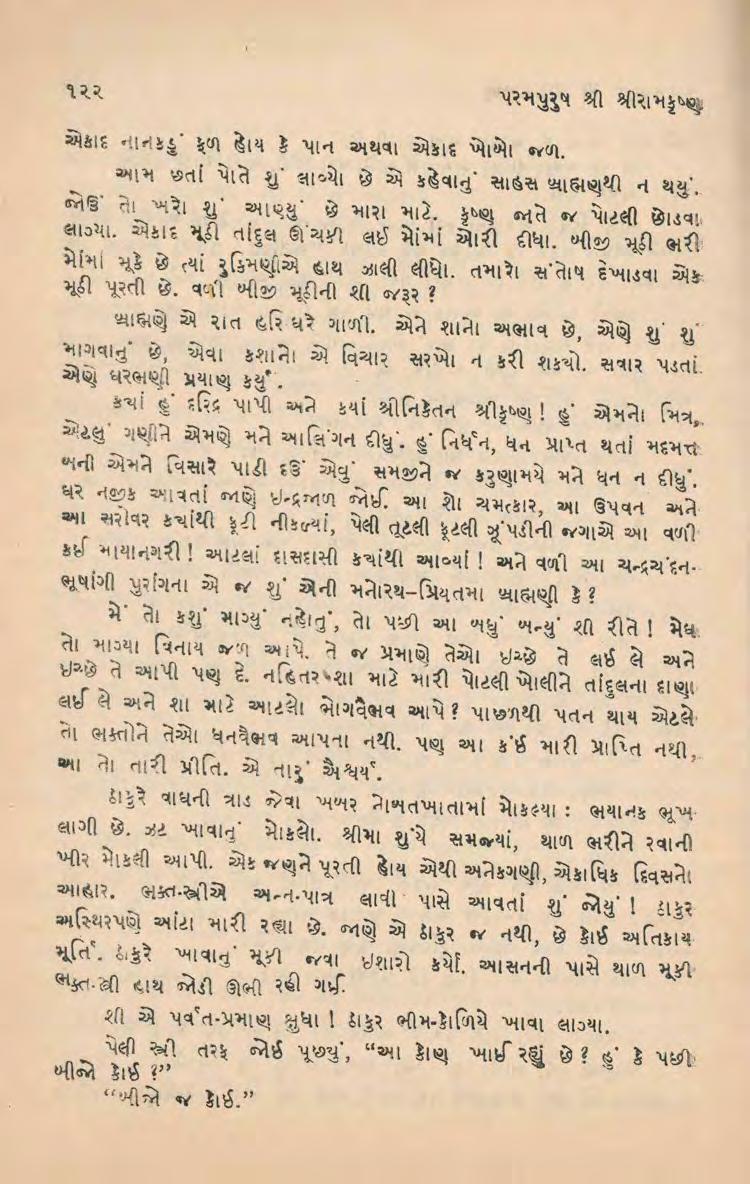 ૧૨૨ પરમપુરુષ શ્રી શ્રીરામકૃષ્ણ
એકાદ નાનકડું ફળ હોય કે પાન અથવા એકાદ ખોબો જળ.
આમ છતાં પોતે શું લાવ્યો છે એ કહેવાનું સાહસ બ્રાહ્મણથી ન થયું.
જોઉં તો ખરો શું આણ્યું છે મારા માટે. કૃષ્ણ જાતે જ પોટલી છોડવા
લાગ્યા. એકાદ મૂઠી તાંદુલ ઊંચકી લઈ મોંમાં ઓરી દીધા. બીજી મૂઠી ભરી
મોંમાં મૂકે છે ત્યાં રુકિમણીએ હાથ ઝાલી લીધો. તમારો સંતોષ દેખાડવા એક
મૂઠી પૂરતી છે. વળી બીજી મૂઠીની શી જરૂર ?
બ્રાહ્મણે એ રાત હરિ ઘરે ગાળી. એને શાનો અભાવ છે, એણે શું શું
માગવાનું છે, એવા કશાનો એ વિચાર સરખો ન કરી શકયો. સવાર પડતાં
એણે ઘરભણી પ્રયાણ કર્યું.
કયાં હું દરિદ્ર પાપી અને કયાં શ્રીનિકેતન શ્રીકૃષ્ણ ! હું એમનો મિત્ર,
એટલું ગણીને એમણે મને આલિંગન દીધું. હું નિર્ધન, ધન પ્રાપ્ત થતાં મદમત્ત
બની એમને વિસારે પાડી દઉં એવું સમજીને જ કરુણામયે મને ધન ન દીધું.
ઘર નજીક આવતાં જાણે ઇન્દ્રજાળ જોઈ. આ શો ચમત્કાર, આ ઉપવન અને
આ સરોવર કયાંથી ફૂટી નીકળ્યાં, પેલી તૂટલી ફૂટલી ઝૂંપડીની જગાએ આ વળી
કઈ માયાનગરી ! આટલાં દાસદાસી કયાંથી આવ્યાં ! અને વળી આ ચન્દ્રચંદન-
ભૂષાંગી પુરાંગના એ જ શું એની મનોરથ–પ્રિયતમા બ્રાહ્મણી કે ?
મેં તો કશું માગ્યું નહોતું, તો પછી આ બધું બન્યું શી રીતે ! મેઘ
તો માગ્યા વિનાય જળ આપે. તે જ પ્રમાણે તેઓ ઇચ્છે તે લઈ લે અને
ઇચ્છે તે આપી પણ દે. નહિતર શા માટે મારી પોટલી ખોલીને તાંદુલના દાણા
લઈ લે અને શા માટે આટલો ભોગવૈભવ આપે ? પાછળથી પતન થાય એટલે
તો ભક્તોને તેઓ ધનવૈભવ આપતા નથી. પણ આ કંઈ મારી પ્રાપ્તિ નથી,
આ તો તારી પ્રીતિ. એ તારું ઐશ્વર્ય.
ઠાકુરે વાઘની ત્રાડ જેવા ખબર નોબતખાનામાં મોકલ્યા : ભયાનક ભૂખ
લાગી છે. ઝટ ખાવાનું મોકલો. શ્રીમા શુંયે સમજ્યાં, થાળ ભરીને રવાની
ખીર મોકલી આપી. એક જણને પૂરતી હોય એથી અનેકગણી, એકાધિક દિવસનો
આહાર. ભક્ત-સ્ત્રીએ અન્ન-પાત્ર લાવી પાસે આવતાં શું જોયું ! ઠાકુર
અસ્થિરપણે આંટા મારી રહ્યા છે. જાણે એ ઠાકુર જ નથી, છે કોઈ અતિકાય
મૂર્તિ. ઠાકુરે ખાવાનું મૂકી જવા ઇશારો કર્યો. આસનની પાસે થાળ મૂકી
ભક્ત-સ્ત્રી હાથ જોડી ઊભી રહી ગઈ.
શી એ પર્વત-પ્રમાણ ક્ષુધા ! ઠાકુર ભીમ-કોળિયે ખાવા લાગ્યા.
પેલી સ્ત્રી તરફ જોઈ પૂછયું, “આ કોણ ખાઈ રહ્યું છે ? હું કે પછી
બીજો કોઈ ?”
“બીજો જ કોઈ.”